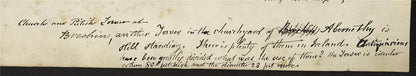 Church and Petish Tower at
Brechin, another Tower is the churchyard of Abernethy is
still standing. There is plenty of them in Ireland. Antiquarians
have been greatly divided what was the use of them? The Tower is circular
about 80 feet high and the diameter 28 feet more